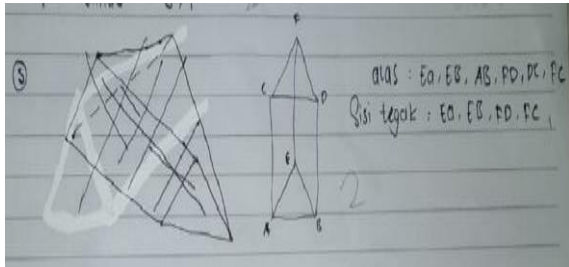 3
F
C D
E
A B
alas : EA, EB, AB, FD, DC, FC
Sisi tegak : EA, EB, FD, FC
2